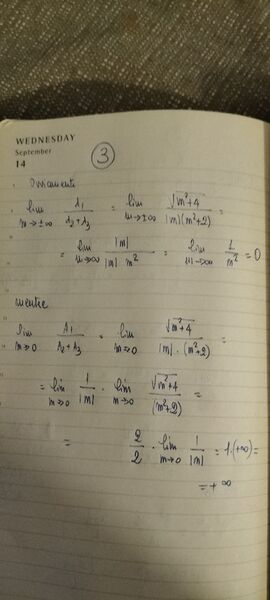 WEDNESDAY
September
14
3
Ovviamente
lim m→±∞ A₁/(A₂+A₃) = lim m→±∞ √(m²+4)/(|m|(m²+2)) =
= lim m→∞ |m|/(|m| m²) = lim m→∞ 1/m² = 0
mentre
lim m→0 A₁/(A₂+A₃) = lim m→0 √(m²+4)/(|m|·(m²+2)) =
= lim m→0 1/|m| · lim m→0 √(m²+4)/(m²+2) =
= 2/2 · lim m→0 1/|m| = 1·(+∞) =
= +∞